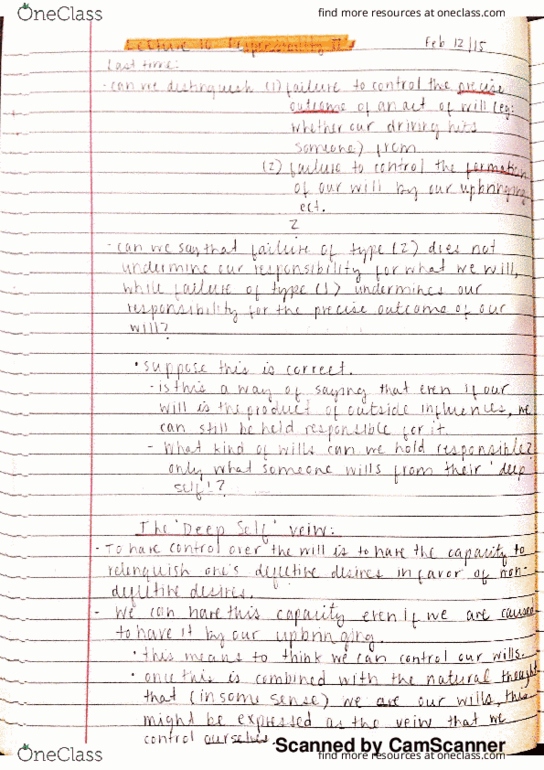 OneClass
find more resources at oneclass.com
Lecture 10 Responsibility II
Feb 12/15
Last time:
- can we distinguish (1) failure to control the precise
outcome of an act of will (eg:
whether our driving hits
someone) from
(2) failure to control the formation
of our will by our upbringing
ect.
?
- can we say that failure of type (2) does not
undermine our responsibility for what we will,
while failure of type (1) undermines our
responsibility for the precise outcome of our
will?
• suppose this is correct.
- is this a way of saying that even if our
will is the product of outside influences, we
can still be held responsible for it
- What kind of wills can we hold responsible?
only what someone wills from their 'deep
self'?
The 'Deep Self' veiw:
- To have control over the will is to have the capacity to
relenquish one's defective desires in favor of non-
defective desires.
- We can have this capacity even if we are caused
to have it by our upbringing.
• this means to think we can control our wills.
• once this is combined with the natural thought
that (in some sense) we are our wills, this
might be expressed as the veiw that we
control ourselves.
Scanned by CamScanner
OneClass
find more resources at oneclass.com